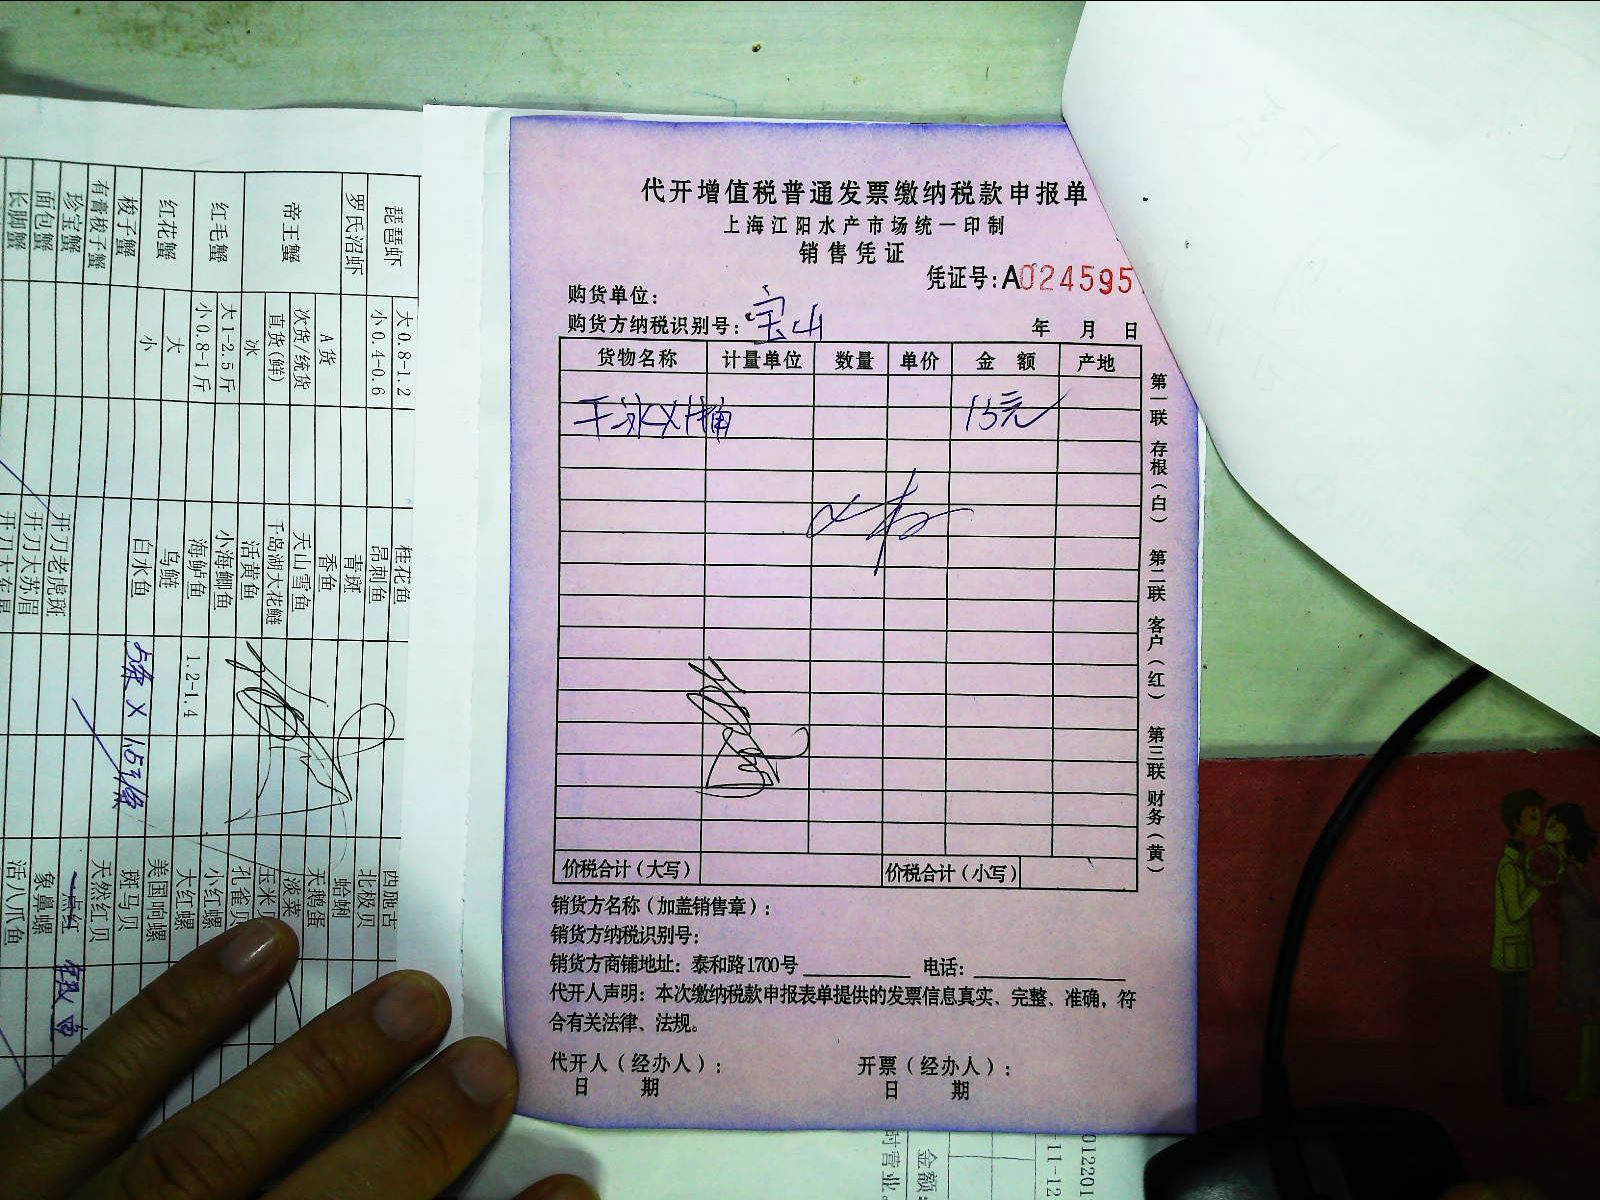 代开增值税普通发票缴纳税款申报单
上海江阳水产市场统一印制
销售凭证
凭证号:A0245957
购货单位:
购货方纳税识别号: 宝山
年 月 日
货物名称 计量单位 数量 单价 金 额 产地
干冰X1桶 15元
价税合计(大写) 价税合计(小写)
销货方名称(加盖销售章):
销货方纳税识别号:
销货方商铺地址:泰和路1700号 电话:
代开人声明:本次缴纳税款申报表单提供的发票信息真实、完整、准确,符
合有关法律、法规。
代开人(经办人): 开票(经办人):
日 期 日 期
第一联 存根(白) 第二联 客户(红) 第三联 财务(黄)
琵琶虾 大0.8-1.2 桂花鱼 西施舌
小0.4-0.6 昂刺鱼 北极贝
罗氏沼虾 青斑 蛤蜊
帝王蟹 A货 香鱼 天鹅蛋
次货/统货 天山雪鱼 淡菜
直货(鲜) 千岛湖大花鲢 玉米贝
冰 活黄鱼 孔雀贝
红毛蟹 大1-2.5斤 小海鲫鱼 小红螺
小0.8-1斤 海鲈鱼 1.2-1.4 大红螺
红花蟹 大 乌鲢 美国响螺
小 白水鱼 5条 X 1.5斤/条 斑马贝
梭子蟹 天然红贝
有膏梭子蟹 开刀老虎斑 一点红
珍宝蟹 开刀大苏眉 象鼻螺
面包蟹 活八爪鱼
长脚蟹
时营业
金额:
-11-12
012201